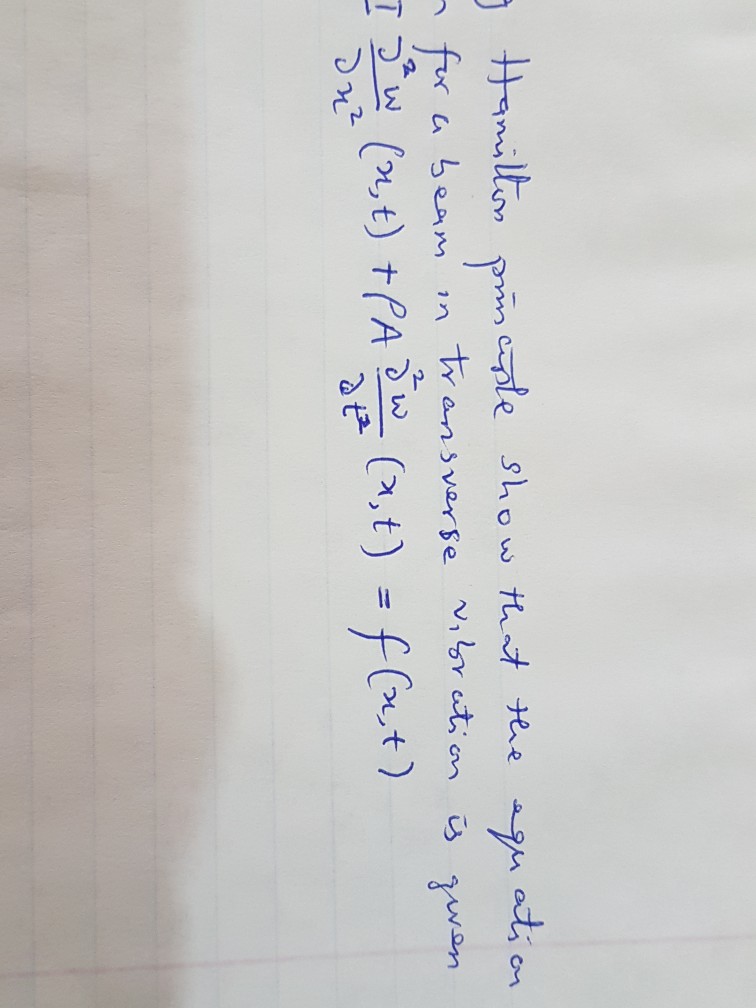 Hamilton principle show that the equation
for a beam in transverse vibration is given
∂²w/∂x² (x,t) + ρA ∂²w/∂t² (x,t) = f(x,t)